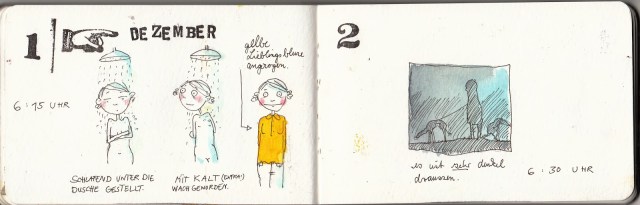 1
DEZEMBER
gelbe
Lieblingsbluse
angezogen.
6:15 UHR
SCHLAFEND UNTER DIE
DUSCHE GESTELLT.
MIT KALT
WACH GEWORDEN.
2
es ist sehr dunkel
draussen.
6:30 UHR